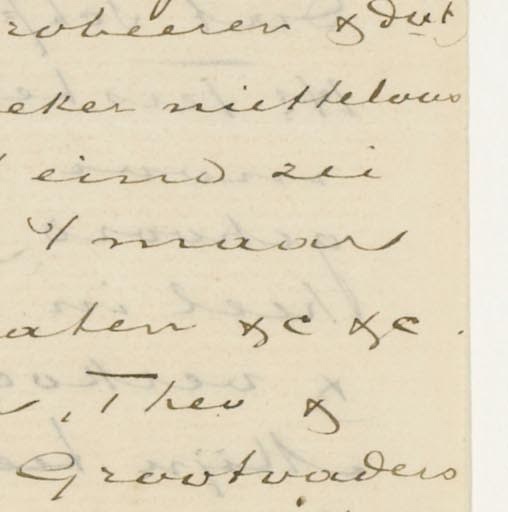 robeeren & dat
eker niettelous
eind zei
maar
aten &c &c.
, Theo &
Grootvaders